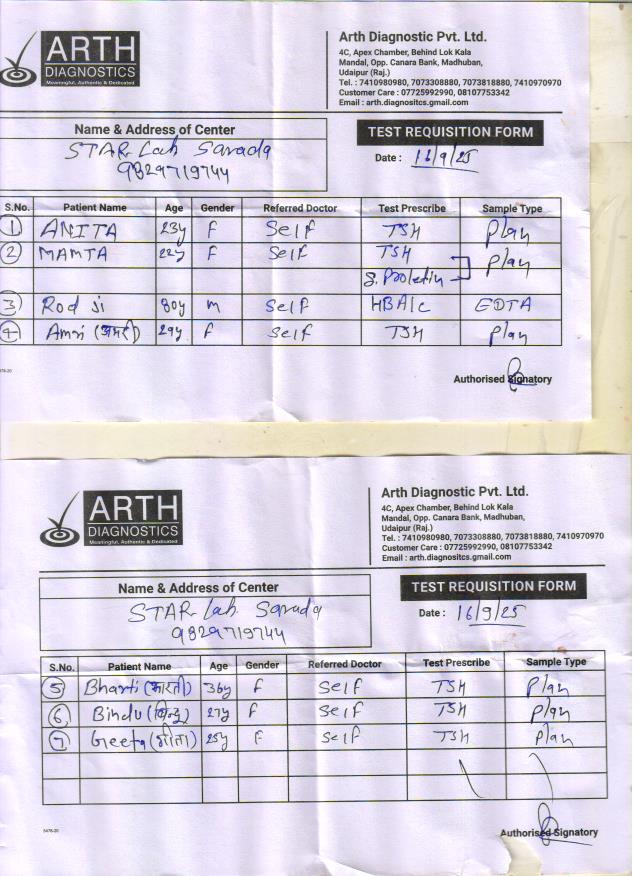 ARTH
DIAGNOSTICS
Meaningful, Authentic & Dedicated
Arth Diagnostic Pvt. Ltd.
4C, Apex Chamber, Behind Lok Kala
Mandal, Opp. Canara Bank, Madhuban,
Udaipur (Raj.)
Tel. : 7410980980, 7073308880, 7073818880, 7410970970
Customer Care : 07725992990, 08107753342
Email : arth.diagnositcs.gmail.com
Name & Address of Center
STAR Lab Sarada
9829719744
TEST REQUISITION FORM
Date : 16/9/25
S.No. Patient Name Age Gender Referred Doctor Test Prescribe Sample Type
1 ANITA 23y F Self TSH Plan
2 MAMTA 22y F Self TSH Plan
S. Prolactin
3 Rod Ji 80y M Self HBA1c EDTA
4 Amri (अमरी) 29y F Self TSH Plan
Authorised Signatory
ARTH
DIAGNOSTICS
Meaningful, Authentic & Dedicated
Arth Diagnostic Pvt. Ltd.
4C, Apex Chamber, Behind Lok Kala
Mandal, Opp. Canara Bank, Madhuban,
Udaipur (Raj.)
Tel. : 7410980980, 7073308880, 7073818880, 7410970970
Customer Care : 07725992990, 08107753342
Email : arth.diagnositcs.gmail.com
Name & Address of Center
STAR Lab Sarada
9829719744
TEST REQUISITION FORM
Date : 16/9/25
S.No. Patient Name Age Gender Referred Doctor Test Prescribe Sample Type
5 Bharti (भारती) 36y F Self TSH Plan
6 Bindu (बिन्दु) 27y F Self TSH Plan
7 Geeta (गीता) 25y F Self TSH Plan
5476-20
Authorised Signatory